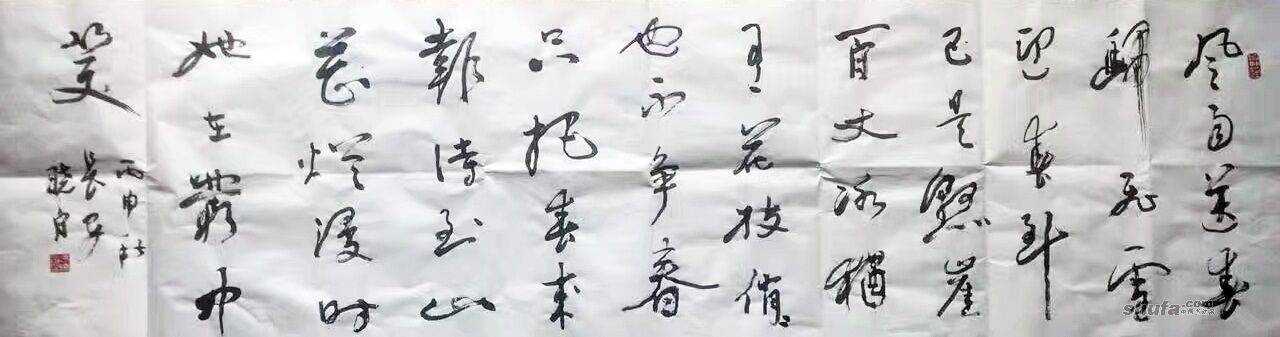 风雨送春
歸飞雪
迎春到
已是懸崖
百丈冰猶
有花枝俏々
也不争春
只把春来
報待到山
花烂漫时
她在叢中
笑
丙申秋
長安
shufa.com